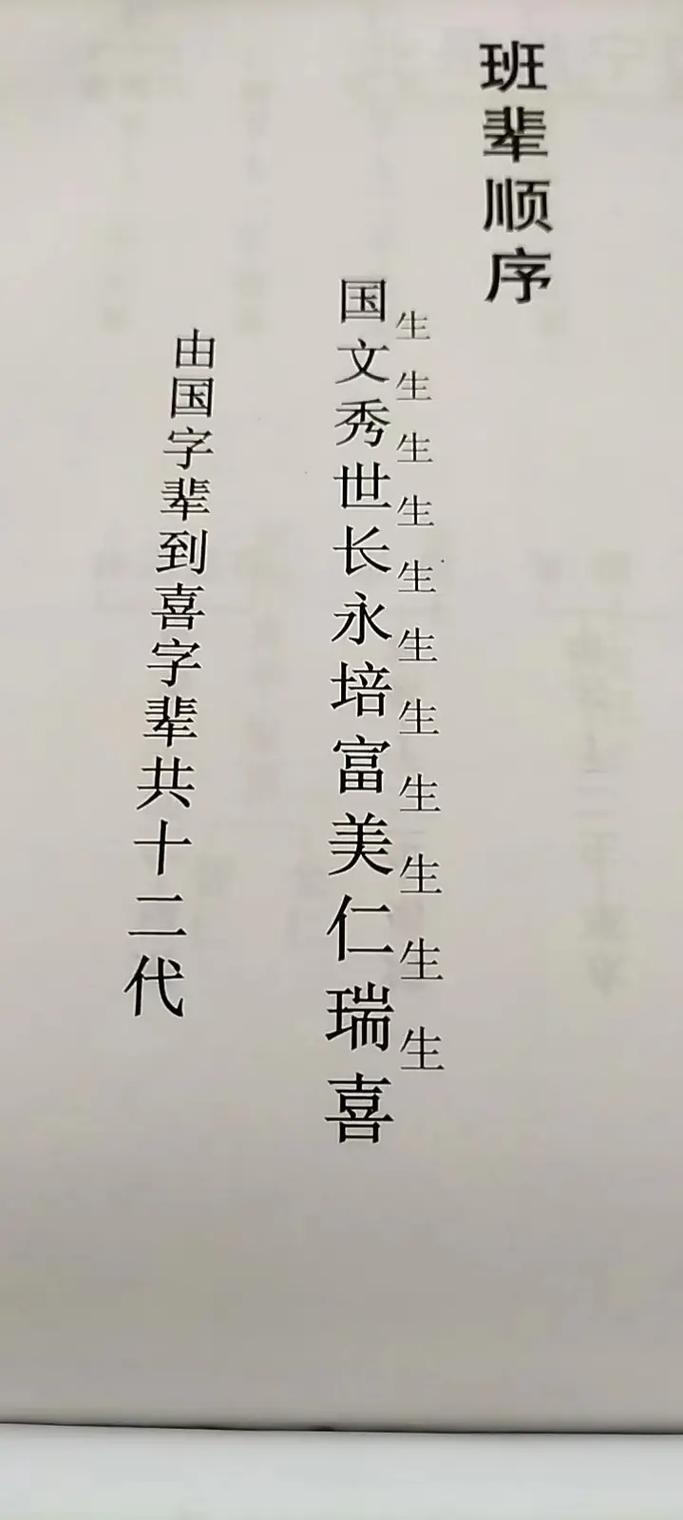 班辈顺序
国生文生秀生世生长生永生培生富生美生仁生瑞生喜
由国字辈到喜字辈共十二代